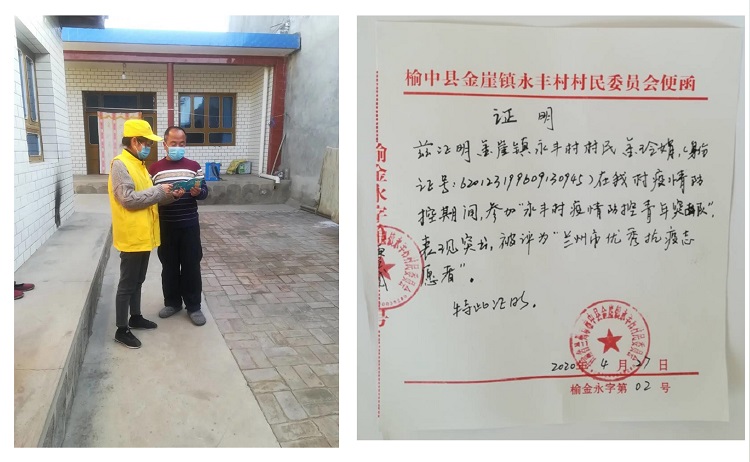 榆中县金崖镇永丰村村民委员会便函
证 明
兹证明金崖镇永丰村村民 玲婧,(身份
证号:620123199609130945)在我村疫情防
控期间,参加“永丰村疫情防控青年突击队”,
表现突出,被评为“兰州市优秀抗疫志
愿者”。
特此证明。
2020年 4 月 27 日
榆金永字第 02 号
榆金永字
号